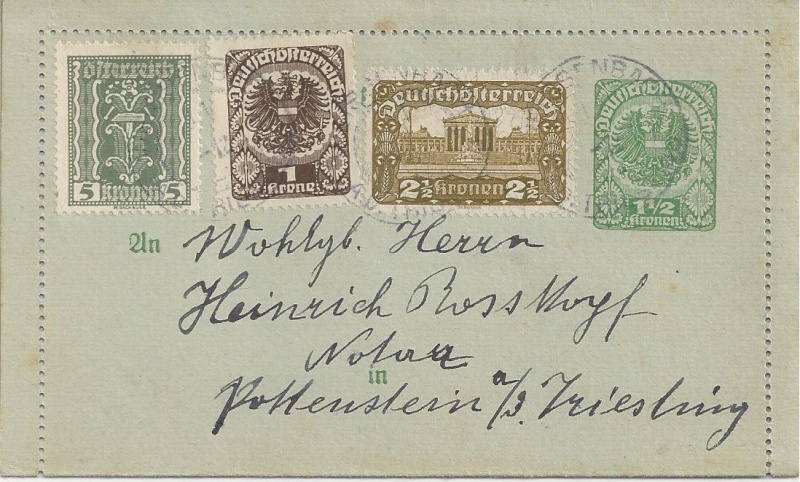 Österreich
5 Kronen 5
Deutschösterreich
1
Krone
Deutschösterreich
2½ Kronen 2½
Deutschösterreich
1½
Kronen
An Wohlgb. Herrn
Heinrich Rosskopf
Notar
in
Pottenstein a/d. Triesting